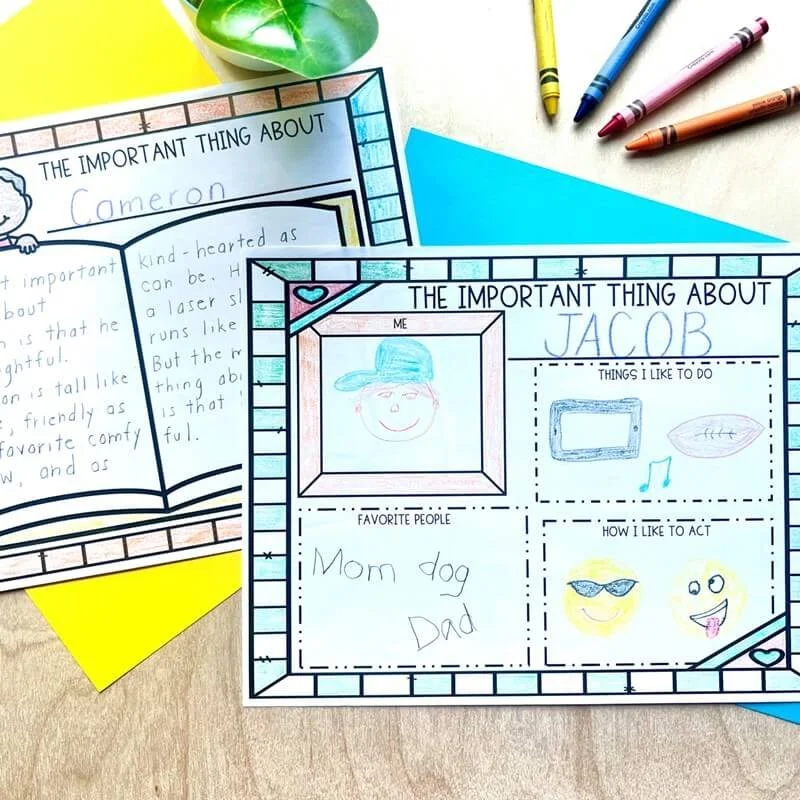 THE IMPORTANT THING ABOUT
Cameron
t important
about
n is that he
ghtful.
on is tall like
, friendly as
favorite comfy
w, and as
kind-hearted as
can be. H
a laser sl
runs like
But the m
thing abo
is that
ful.
THE IMPORTANT THING ABOUT
JACOB
ME
THINGS I LIKE TO DO
FAVORITE PEOPLE
Mom dog
Dad
HOW I LIKE TO ACT